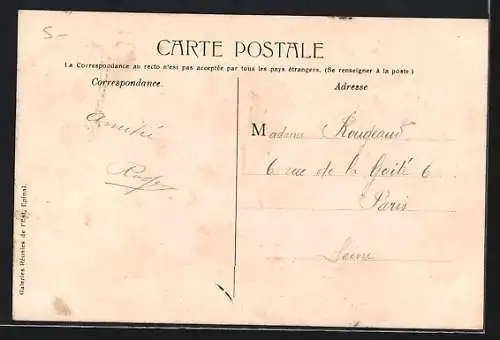 5-
CARTE POSTALE
La Correspondance au recto n'est pas acceptée par tous les pays étrangers. (Se renseigner à la poste.)
Correspondance.
Adresse
Amitié
Madame Rougeaud
6 rue de la Gaité 6
Paris
Seine
Galeries Réunies de l'Est, Epinal.